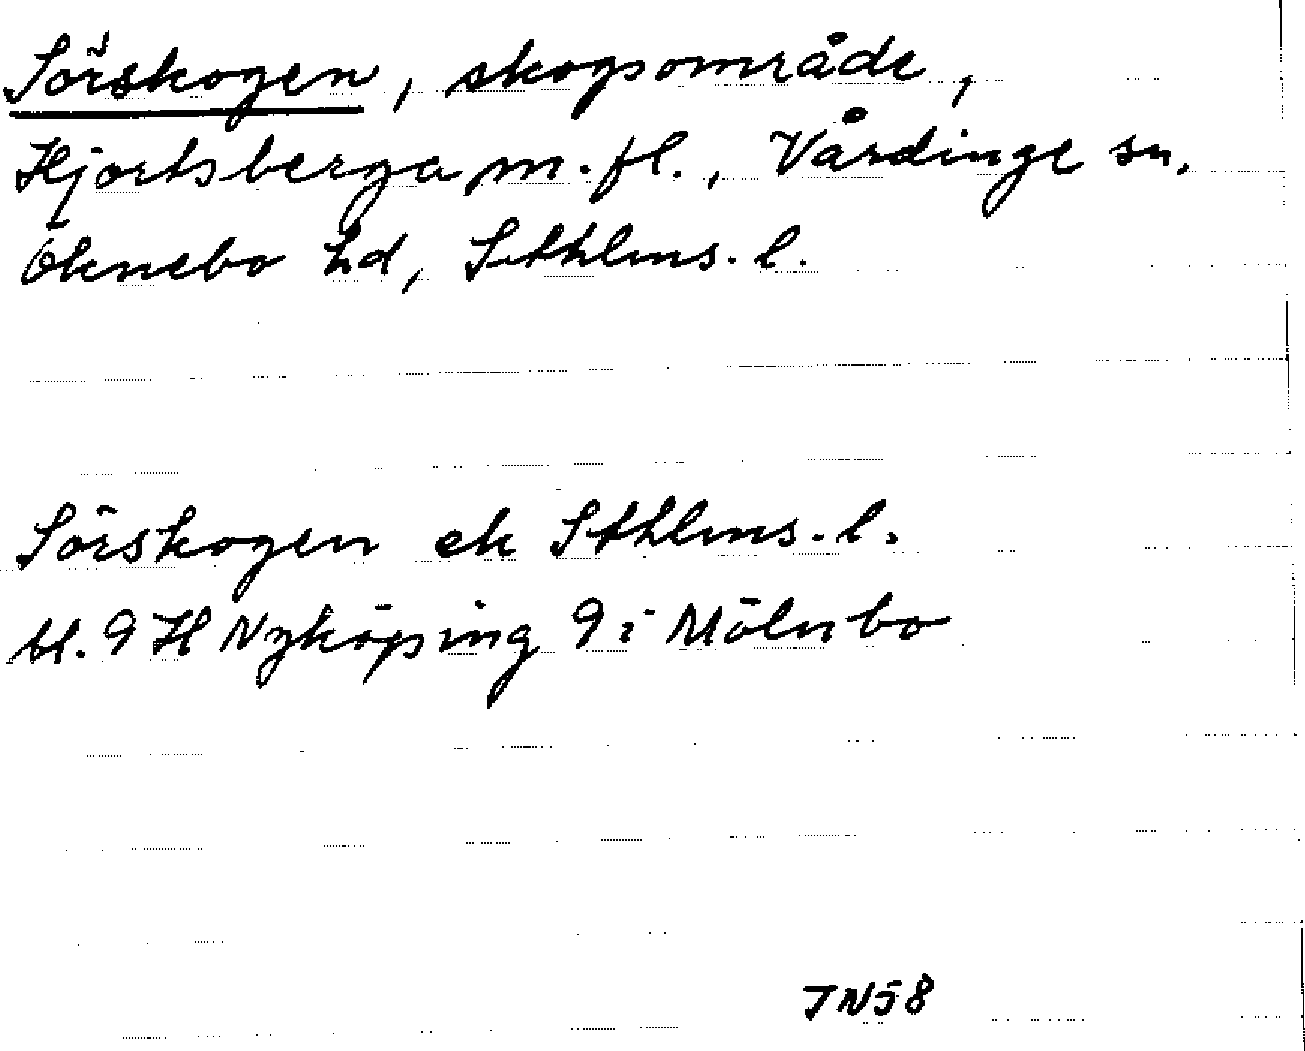 Sörskogen, skogsområde,
Hjortsberga m.fl., Vårdinge sn.
Öknebo hd, Sthlms. l.
Sörskogen ek Sthlms. l.
bl. 9 H Nyköping 9 i Mölnbo
JN58